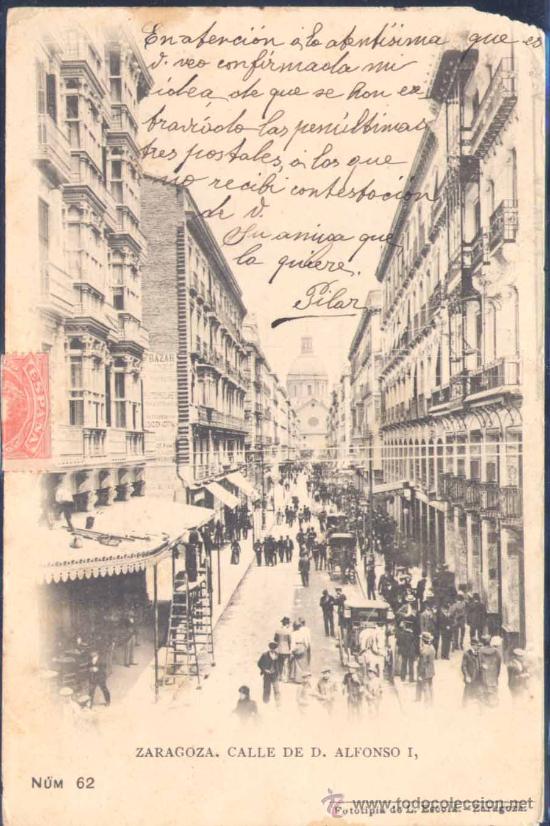 En atención á la atentísima que es
V. veo confirmada mi
idea de que se han ex
traviado las penúltimas
tres postales, á las que
no recibí contestación
de V.
Su amiga que
la quiere,
Pilar
BAZAR
ESPAÑA
ZARAGOZA. CALLE DE D. ALFONSO I,
NÚM 62
Fototipia de L. Escolá.-Zaragoza.
www.todocoleccion.net